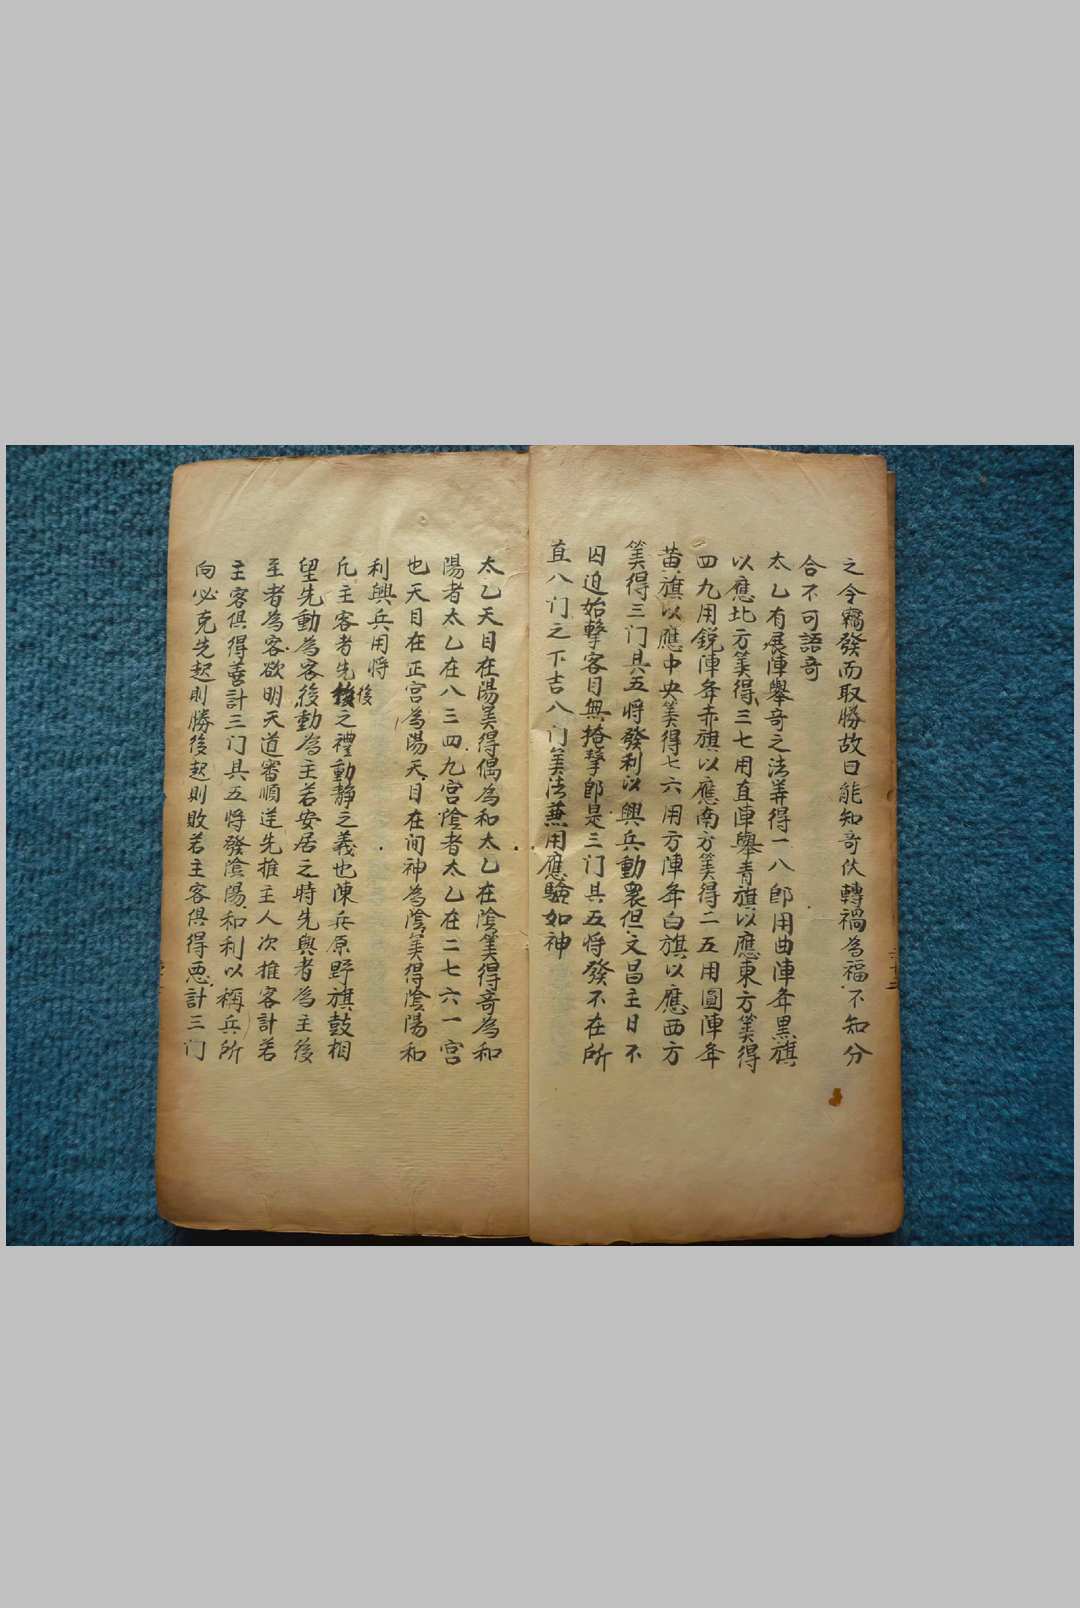 之令竊發而取勝故曰能知奇伏轉禍為福不知分
合不可語奇
太乙有展陣舉奇之法筭得一八即用曲陣年黑旗
以應北方筭得三七用直陣舉青旗以應東方筭得
四九用銳陣年赤旗以應南方筭得二五用圓陣年
黃旗以應中央筭得七六用方陣年白旗以應西方
筭得三门具五將發利以興兵動衆但文昌主日不
囚迫始擊客目無掩擊即是三门具五將發不在所
直八门之下吉八门筭法兼用應驗如神
太乙天目在陽筭得偶為和太乙在陰筭得奇為和
陽者太乙在八三四九宫陰者太乙在二七六一宫
也天目在正宫為陽天目在间神為陰筭得陰陽和
利興兵用將
凡主客者先後之禮動静之義也陳兵原野旗鼓相
望先動為客後動為主若安居之時先舆者為主後
至者為客欲明天道審順逆先推主人次推客計若
主客俱得善計三门具五將發陰陽和利以稱兵所
向必克先起則勝後起則敗若主客俱得惡計三门